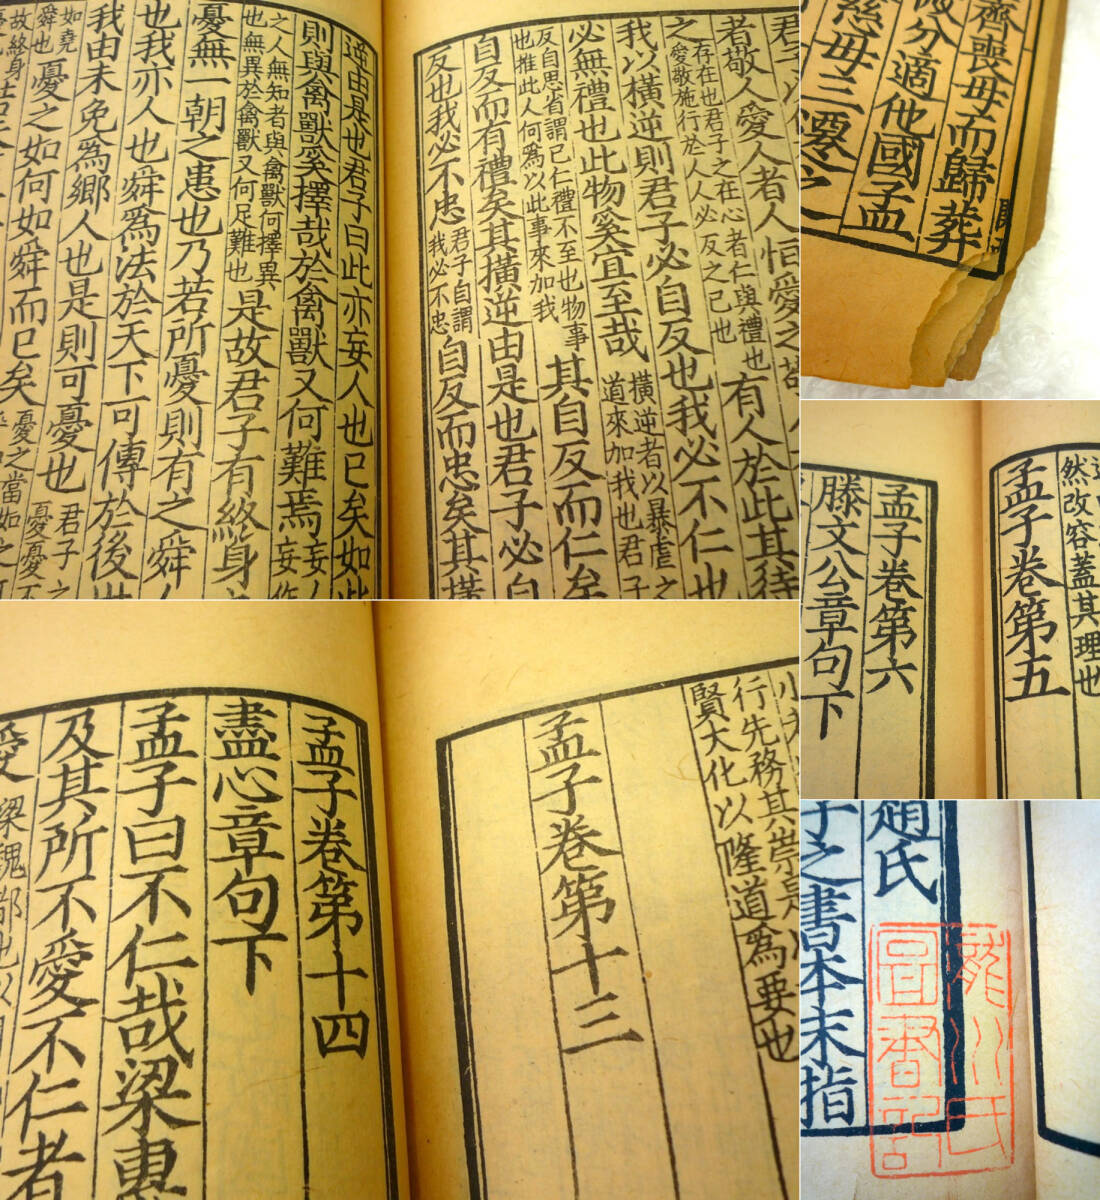 者敬人愛人者人恒愛之
之
存在也君子之在心者仁與禮也
愛敬施行於人人必反之已也
有人於此其待
我以橫逆則君子必自反也我必不仁也
必無禮也此物奚宜至哉
橫逆者以暴虐之
道來加我也君子
反自思省謂已仁禮不至也物事
也推此人何為以此事來加我
其自反而仁矣
自反而有禮矣其橫逆由是也君子必自
反也我必不忠
君子自謂
我必不忠
自反而忠矣其橫
逆由是也君子曰此亦妄人也已矣如此
則與禽獸奚擇哉於禽獸又何難焉
妄人
妄作
之人無知者與禽獸何擇異
也無異於禽獸又何足難也
是故君子有終身
憂無一朝之患也乃若所憂則有之舜人
也我亦人也舜爲法於天下可傳於後世
我由未免爲鄉人也是則可憂也
君子之
憂憂不
如堯
舜也
憂之如何如舜而已矣
憂之當如
故終身
齊喪母而歸葬
分適他國孟
慈母三遷之
然改容蓋其理也
孟子卷第五
孟子卷第六
滕文公章句下
行先務其崇是
賢大化以隆道爲要也
孟子卷第十三
孟子卷第十四
盡心章句下
孟子曰不仁哉梁惠
及其所不愛不仁者
愛
梁魏都也以
趙氏
子之書本末指
瀧川氏
圖書記